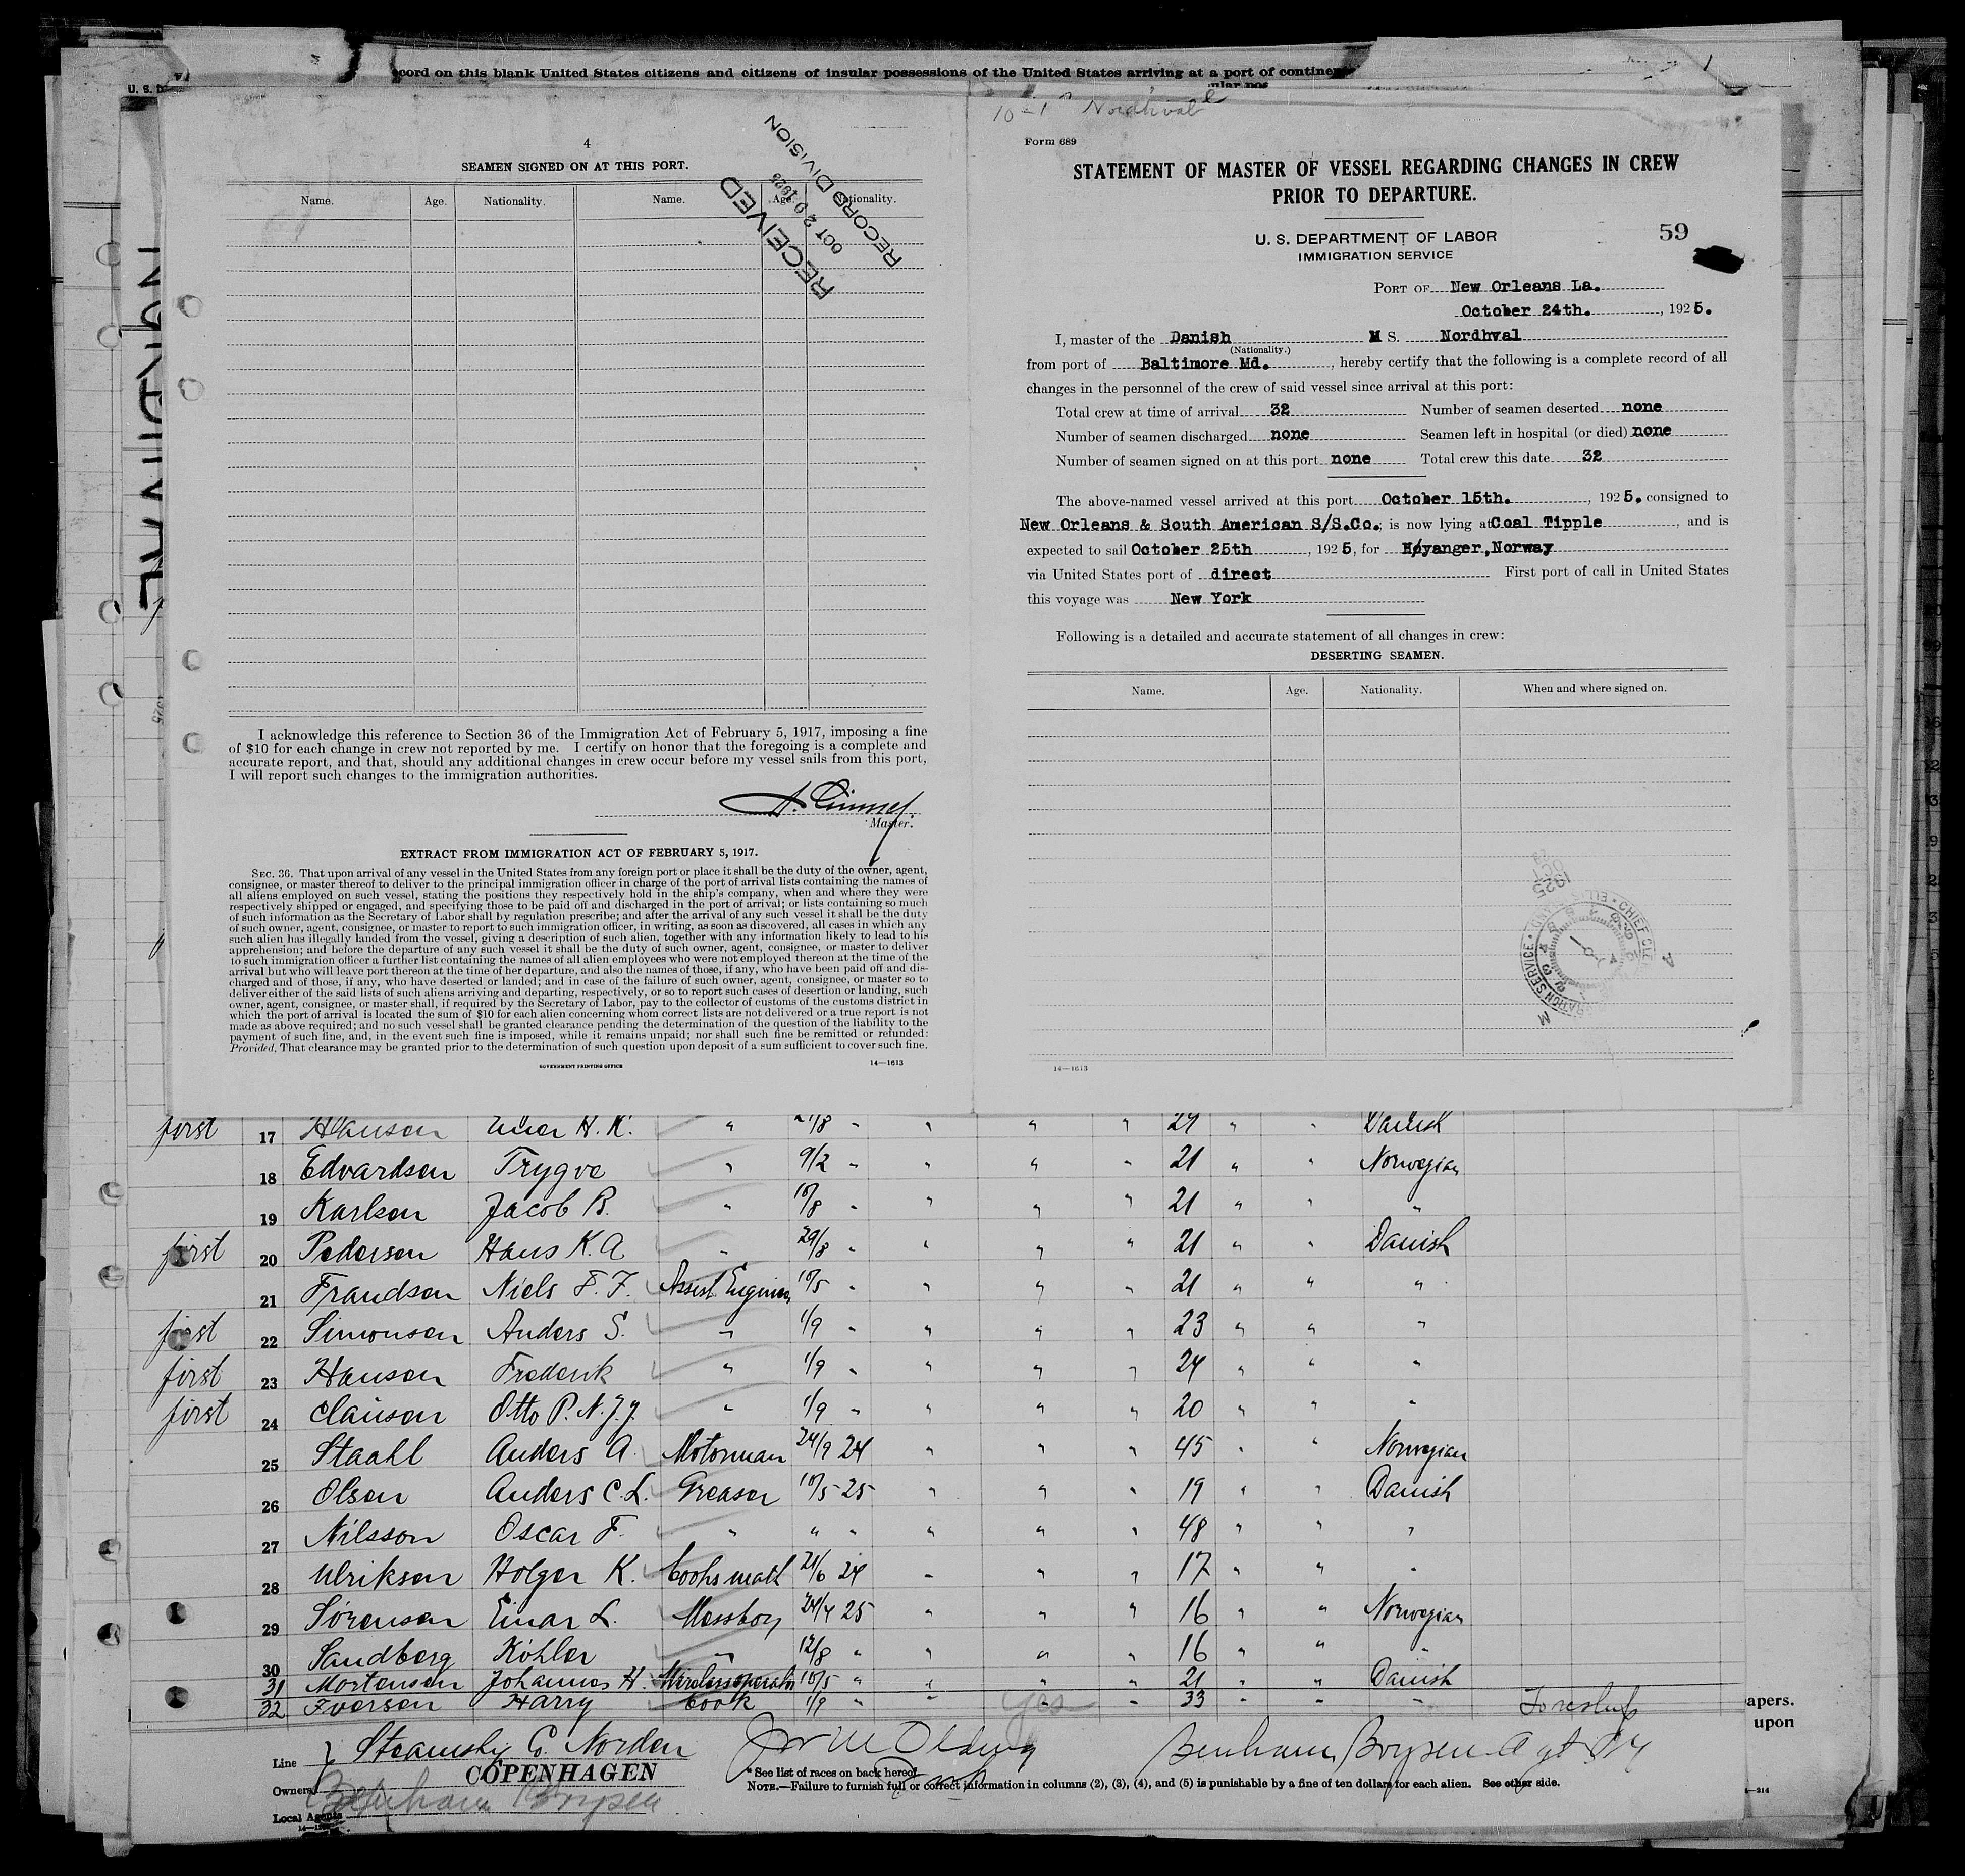 cord on this blank United States citizens and citizens of insular possessions of the United States arriving at a port of contine
U. S. D
ular pos
4
SEAMEN SIGNED ON AT THIS PORT.
Name. Age. Nationality. Name. Age. Nationality.
RECEIVED
OCT 29 1925
RECORD DIVISION
I acknowledge this reference to Section 36 of the Immigration Act of February 5, 1917, imposing a fine
of $10 for each change in crew not reported by me. I certify on honor that the foregoing is a complete and
accurate report, and that, should any additional changes in crew occur before my vessel sails from this port,
I will report such changes to the immigration authorities.
Master.
EXTRACT FROM IMMIGRATION ACT OF FEBRUARY 5, 1917.
SEC. 36. That upon arrival of any vessel in the United States from any foreign port or place it shall be the duty of the owner, agent,
consignee, or master thereof to deliver to the principal immigration officer in charge of the port of arrival lists containing the names of
all aliens employed on such vessel, stating the positions they respectively hold in the ship's company, when and where they were
respectively shipped or engaged, and specifying those to be paid off and discharged in the port of arrival; or lists containing so much
of such information as the Secretary of Labor shall by regulation prescribe; and after the arrival of any such vessel it shall be the duty
of such owner, agent, consignee, or master to report to such immigration officer, in writing, as soon as discovered, all cases in which any
such alien has illegally landed from the vessel, giving a description of such alien, together with any information likely to lead to his
apprehension; and before the departure of any such vessel it shall be the duty of such owner, agent, consignee, or master to deliver
to such immigration officer a further list containing the names of all alien employees who were not employed thereon at the time of the
arrival but who will leave port thereon at the time of her departure, and also the names of those, if any, who have been paid off and dis-
charged and of those, if any, who have deserted or landed; and in case of the failure of such owner, agent, consignee, or master so to
deliver either of the said lists of such aliens arriving and departing, respectively, or so to report such cases of desertion or landing, such
owner, agent, consignee, or master shall, if required by the Secretary of Labor, pay to the collector of customs of the customs district in
which the port of arrival is located the sum of $10 for each alien concerning whom correct lists are not delivered or a true report is not
made as above required; and no such vessel shall be granted clearance pending the determination of the question of the liability to the
payment of such fine, and, in the event such fine is imposed, while it remains unpaid; nor shall such fine be remitted or refunded:
Provided, That clearance may be granted prior to the determination of such question upon deposit of a sum sufficient to cover such fine.
GOVERNMENT PRINTING OFFICE 14—1613
Nordhval
Form 689
STATEMENT OF MASTER OF VESSEL REGARDING CHANGES IN CREW
PRIOR TO DEPARTURE.
U. S. DEPARTMENT OF LABOR
IMMIGRATION SERVICE
59
PORT OF New Orleans La.
October 24th. , 1925.
I, master of the Danish M S. Nordhval
(Nationality.)
from port of Baltimore Md. , hereby certify that the following is a complete record of all
changes in the personnel of the crew of said vessel since arrival at this port:
Total crew at time of arrival 32 Number of seamen deserted none
Number of seamen discharged none Seamen left in hospital (or died) none
Number of seamen signed on at this port none Total crew this date 32
The above-named vessel arrived at this port October 15th. , 1925. consigned to
New Orleans & South American S/S.Co.; is now lying at Coal Tipple , and is
expected to sail October 25th , 1925, for Høyanger, Norway
via United States port of direct First port of call in United States
this voyage was New York
Following is a detailed and accurate statement of all changes in crew:
DESERTING SEAMEN.
Name. Age. Nationality. When and where signed on.
14—1613
first 17 Hansen Einer H. K. " 21/8 " " " " 24 " " Danish
18 Edvardsen Trygve " 9/2 " " " " 21 " " Norwegian
19 Karlsen Jacob B. " 10/8 " " " " 21 " " "
first 20 Pedersen Hans K. A " 29/8 " " " " 21 " " Danish
21 Frandsen Niels F. F. Assist. Engineer 10/5 " " " 21 " " "
first 22 Simonsen Anders S. " 1/9 " " " " 23 " " "
first 23 Hansen Frederik " 1/9 " " " " 24 " " "
first 24 Clausen Otto P. N. J. J. " 1/9 " " " " 20 " " "
25 Staahl Anders A. Motorman 24/9 24 " " " 45 " " Norwegian
26 Olsen Anders C. L. Greaser 10/5 25 " " " 19 " " Danish
27 Nilsson Oscar F. " " " " " " 48 " " "
28 Ulriksen Holger K. Cooks math 21/6 24 " " " 17 " " "
29 Sørensen Einar L. Messboy 24/4 25 " " " 16 " " Norwegian
30 Sandberg Köhler " 12/8 " " " " 16 " " "
31 Mortensen Johannes H. Wirelessoperator 10/5 " " " " 21 " " Danish
32 Iversen Harry Cook 1/9 " " yes " 33 " " "
apers.
upon
Line Steamship Co. Norden
COPENHAGEN
Owners
Local Agents Benham Boysen
Benham Boysen Agt
* See list of races on back hereof.
NOTE.—Failure to furnish full or correct information in columns (2), (3), (4), and (5) is punishable by a fine of ten dollars for each alien. See other side.